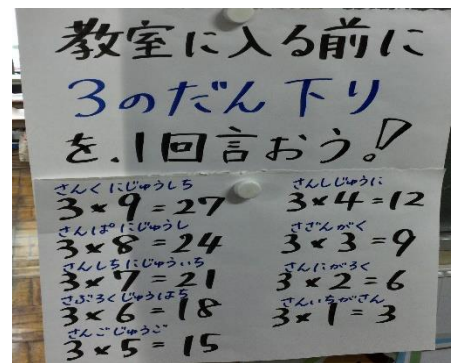 教室に入る前に
3のだん下り
を、1回言おう!
さんくにじゅうしち
3×9=27
さんぱにじゅうし
3×8=24
さんしちにじゅういち
3×7=21
さぶろくじゅうはち
3×6=18
さんごじゅうご
3×5=15
さんしじゅうに
3×4=12
さざんがく
3×3=9
さんにがろく
3×2=6
さんいちがさん
3×1=3